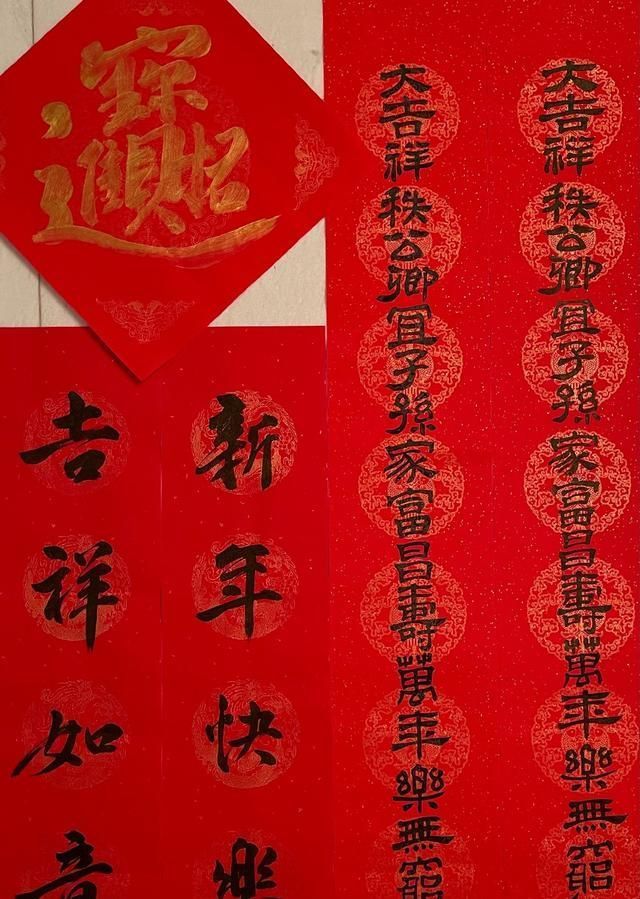 大吉祥秩公卿宜子孫家富昌壽萬年樂無窮
大吉祥秩公卿宜子孫家富昌壽萬年樂無窮
招財進寶
新年快樂
吉祥如意